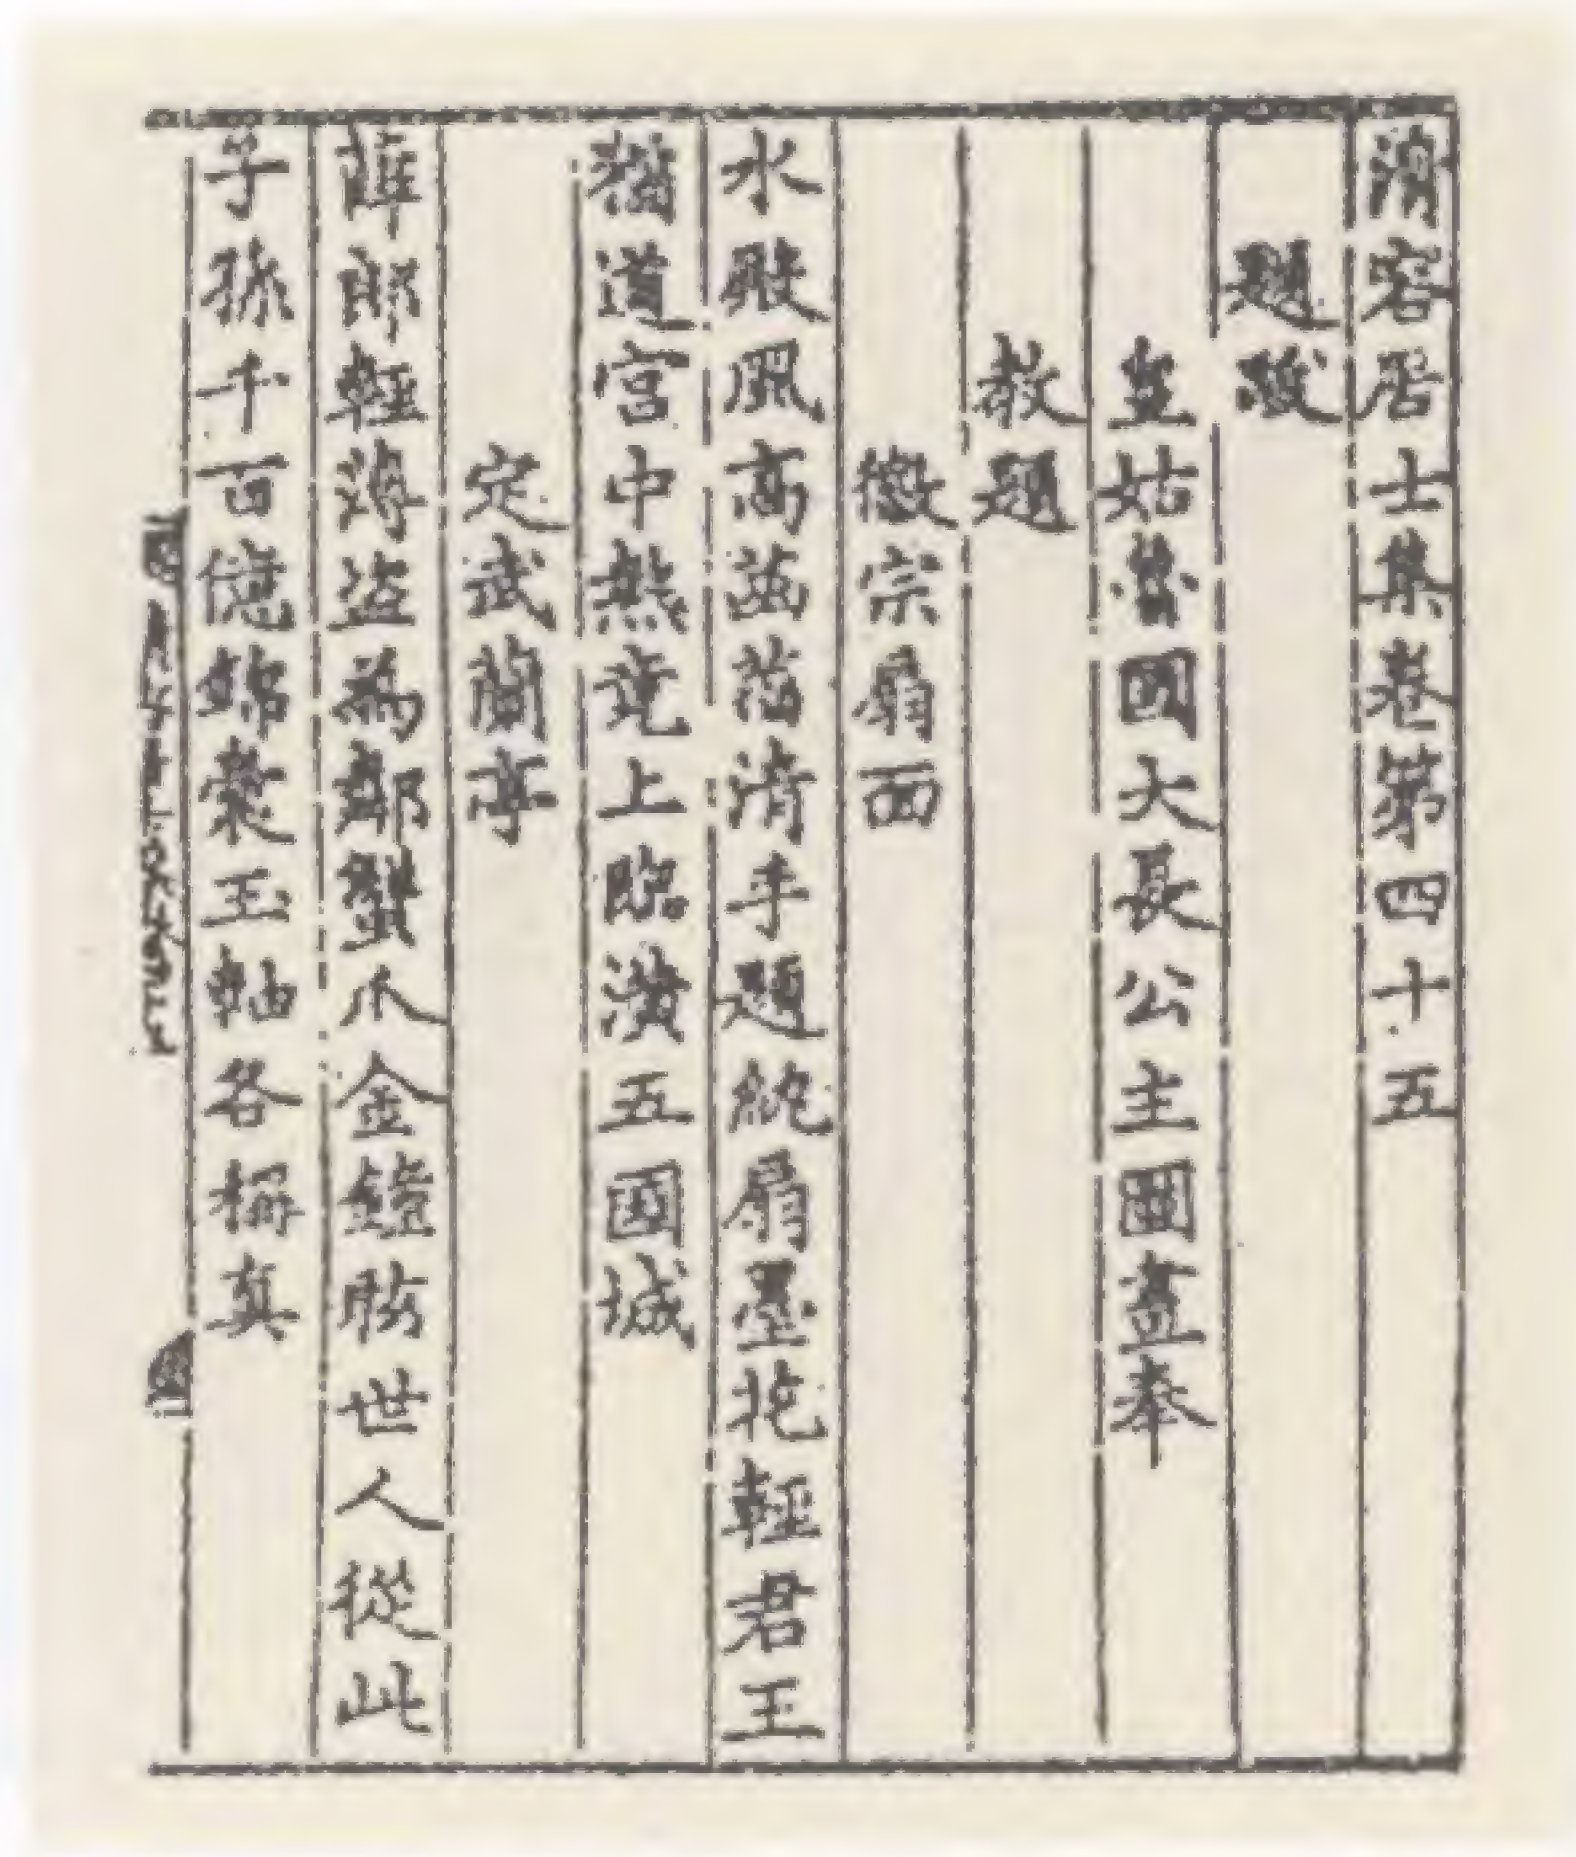 清容居士集卷第四十五
題跋
皇姑魯國大長公主圖畫奉
教題
徽宗扇面
水殿風高菡萏清手題紈扇墨花輕君王
猶道宮中熱竟上臨潢五國城
定武蘭亭
薛郎輕薄盜為鄰蟹爪金鐺眩世人從此
子孫千百億錦囊玉軸各稱真